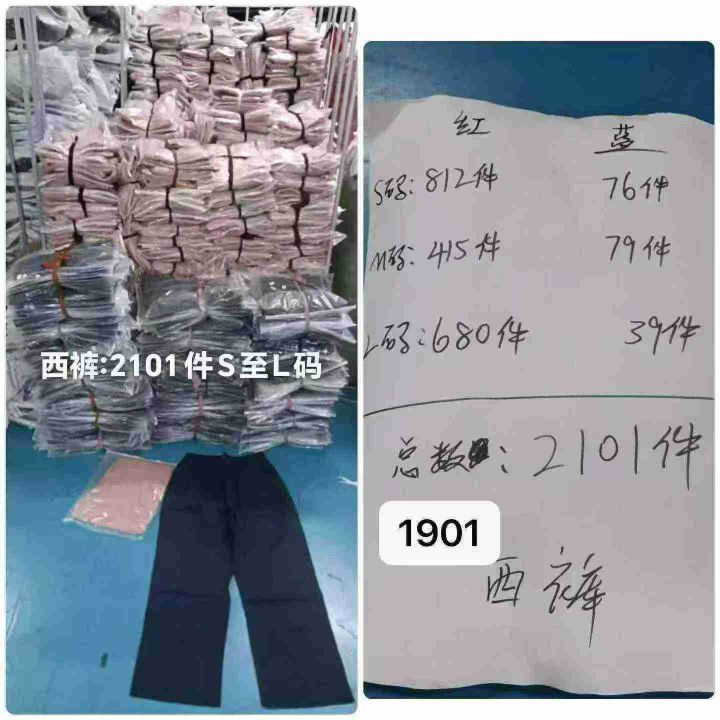 西裤:2101件S至L码
红 蓝
S码:812件 76件
M码:415件 79件
L码:680件 39件
总数:2101件
1901
西裤